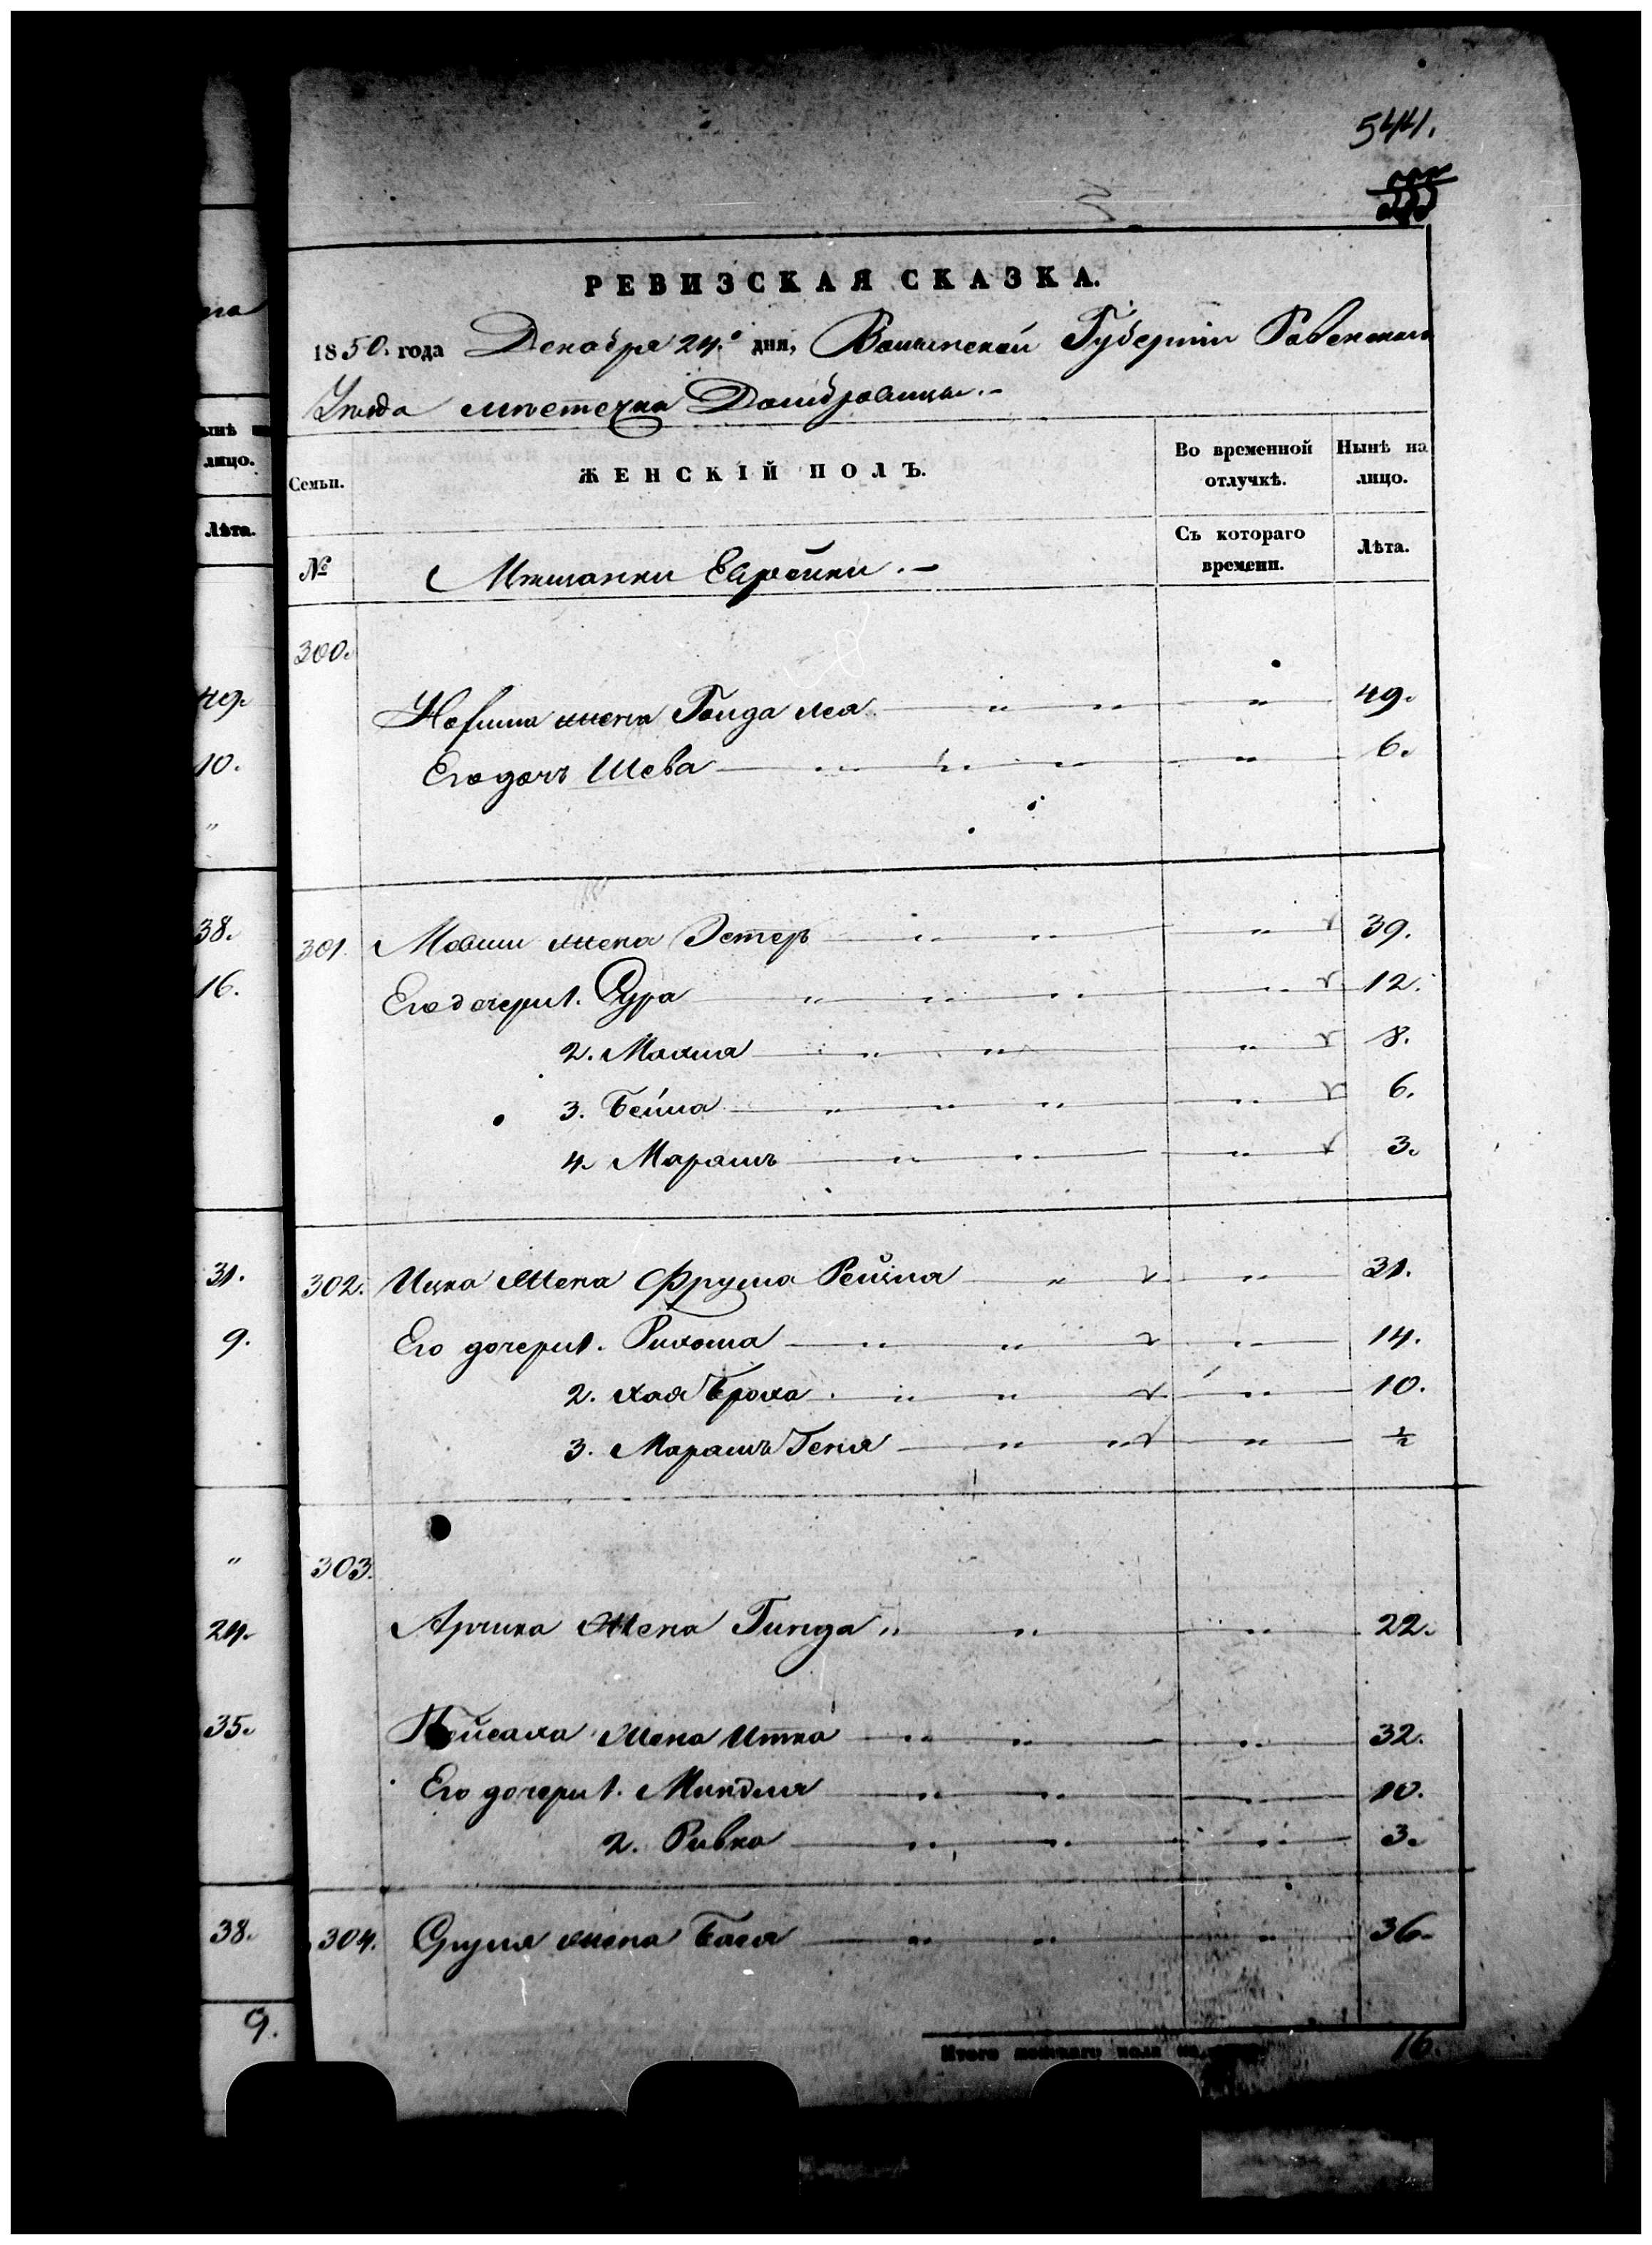 541.
РЕВИЗСКАЯ СКАЗКА.
1850. года Декабря 24.º дня, Волынской Губернiи Ровенскаго
Уѣзда мѣстечка Домбровицы.-
ынѣ на
лицо.
Лѣта.
Семьи.
ЖЕНСКIЙ ПОЛЪ.
Во временной отлучкѣ.
Нынѣ на лицо.
№
Мѣщанки Еврейки.-
Съ котораго времени.
Лѣта.
300.
49. жена Гольда Лея " " " 49.
10. Его дочь Шева " " " " 6.
"
38. 301. Мовши жена Эстеръ " " " 39.
16. Его дочери 1. Сура " " " " 12.
2. Малка " " " 8.
3. Бейла " " " " 6.
4. Марамъ " " " 3.
31. 302. Ицка жена Фрума Рейзля " " 31.
9. Его дочери 1. " " " 14.
2. Хая Броха " " " 10.
3. Марамъ Геня " " " ½
" 303.
24. Арчика жена Гинда " " " 22.
35. Пейсаха жена Итка " " " 32.
Его дочери 1. Миндля " " " 10.
2. Ривка " " " 3.
38. 304. Сруля жена Бася " " " 36.
9.
Итого женскаго пола на лицо 16.